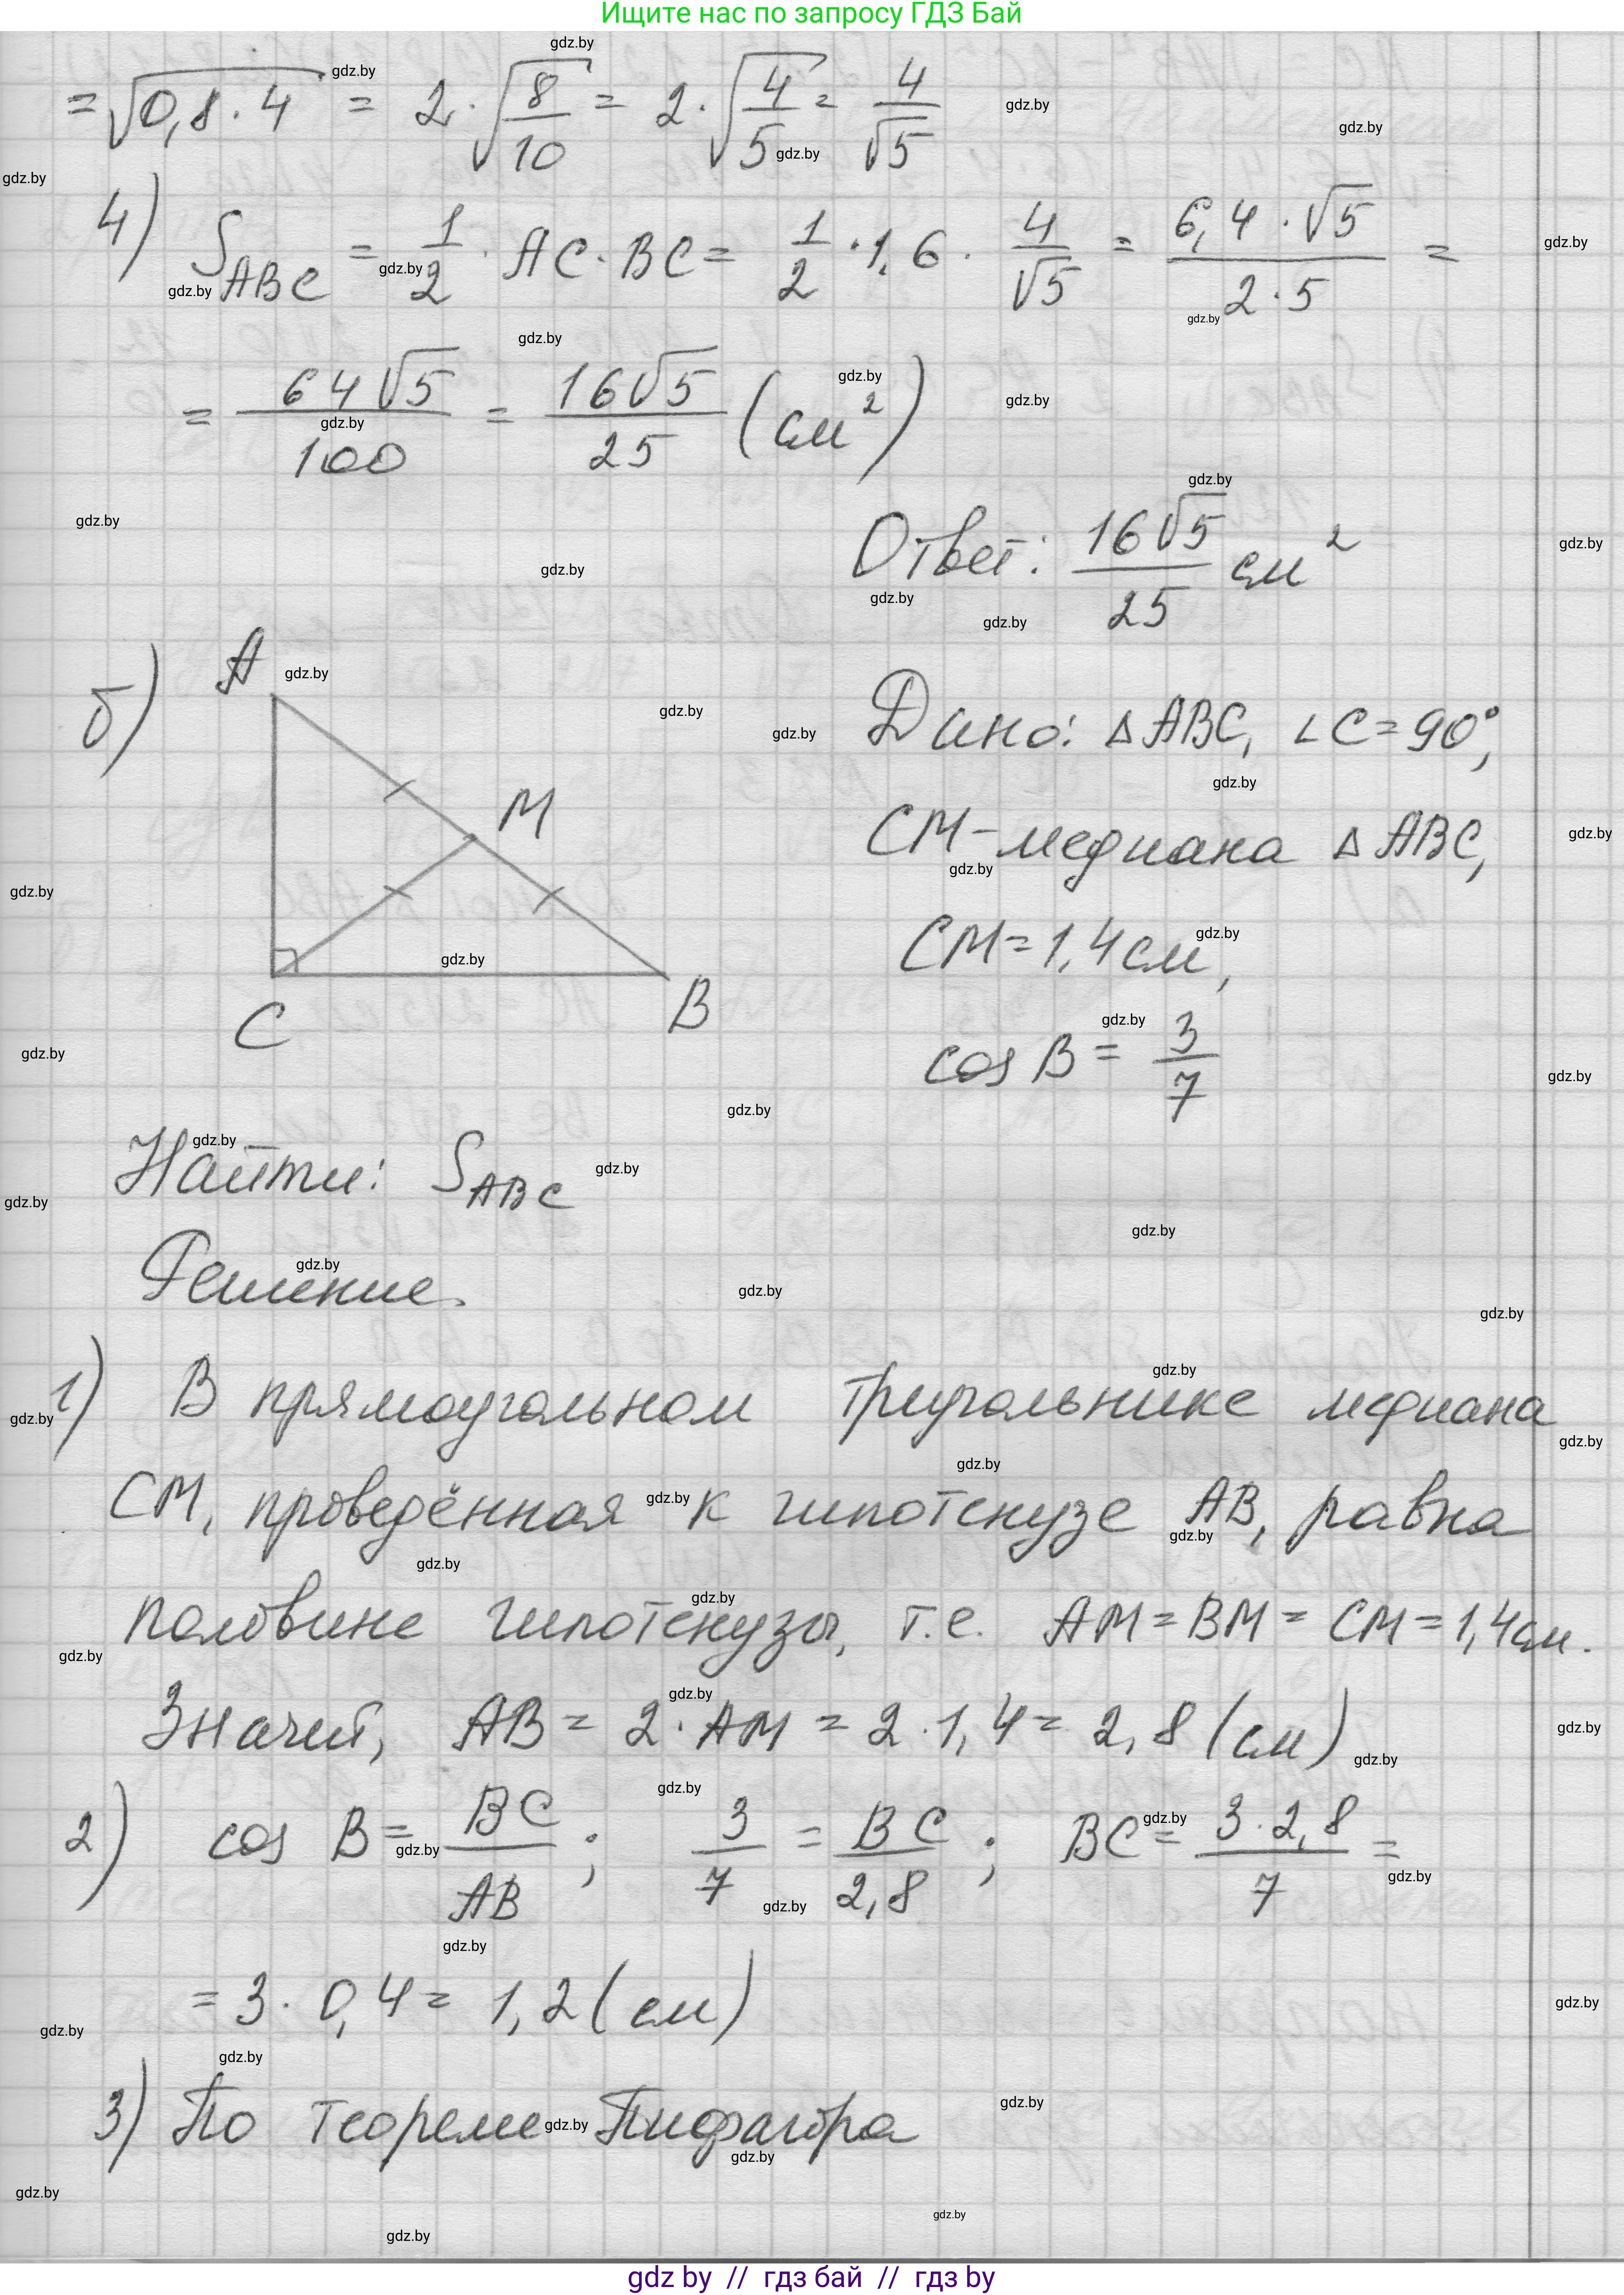 Ищите нас по запросу ГДЗ Бай
= √(0,8 · 4) = 2 · √(8/10) = 2 · √(4/5) = 4/√5
4) S_ABC = 1/2 · AC · BC = 1/2 · 1,6 · 4/√5 = (6,4 · √5)/(2 · 5) =
= 64√5/100 = 16√5/25 (см²)
Ответ: 16√5/25 см²
б) A M C B
Дано: △ABC, ∠C = 90°,
CM - медиана △ABC,
CM = 1,4 см,
cos B = 3/7
Найти: S_ABC
Решение.
1) В прямоугольном треугольнике медиана
CM, проведённая к гипотенузе AB, равна
половине гипотенузы, т.е. AM = BM = CM = 1,4 см.
Значит, AB = 2 · AM = 2 · 1,4 = 2,8 (см)
2) cos B = BC/AB ; 3/7 = BC/2,8 ; BC = (3 · 2,8)/7 =
= 3 · 0,4 = 1,2 (см)
3) По теореме Пифагора
gdz by // гдз бай // гдз by